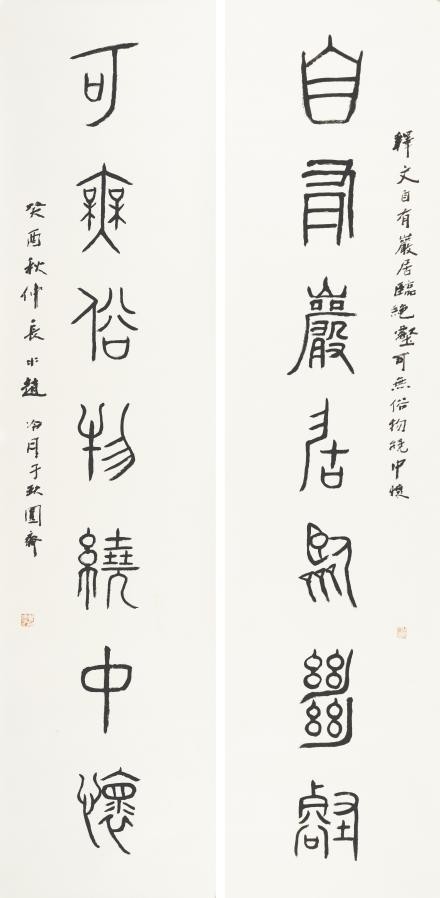 釋文自有巖居臨絕壑可無俗物繞中懷
自有巖居臨絕壑
可無俗物繞中懷
癸酉秋仲長水趙冷月于缺圓齋